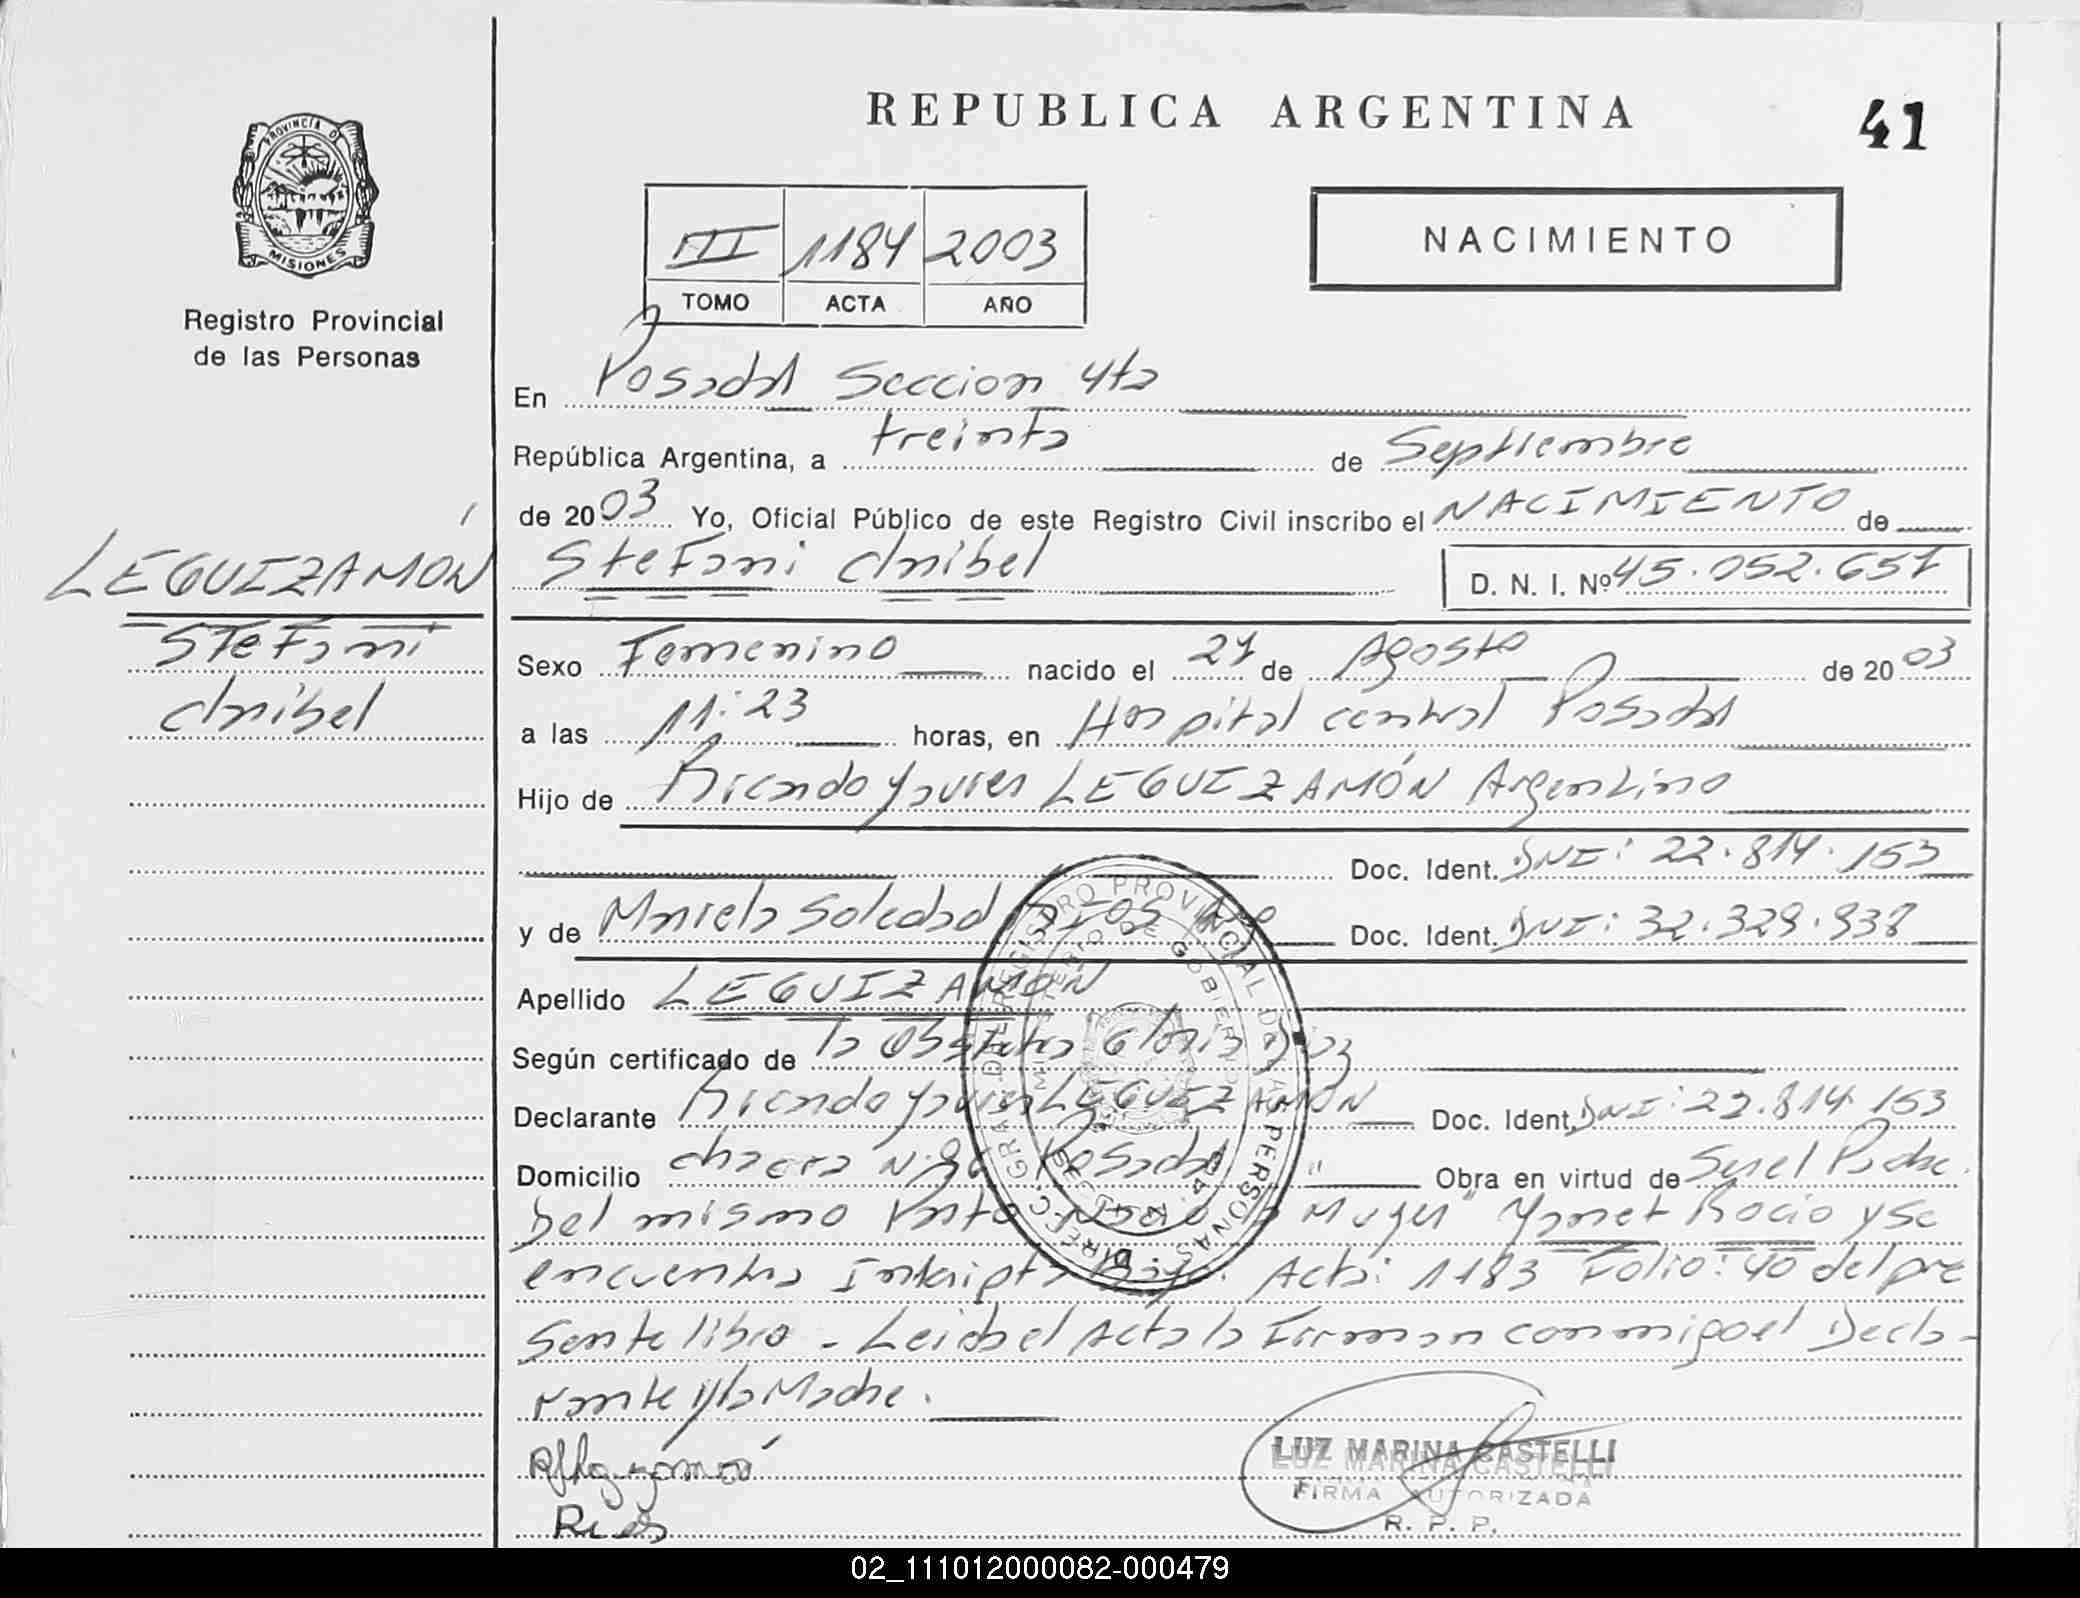 REPUBLICA ARGENTINA
41
PROVINCIA DE
MISIONES
Registro Provincial
de las Personas
III 1184 2003
TOMO ACTA AÑO
NACIMIENTO
En Posadas Seccion 4ta
República Argentina, a treinta de Septiembre
de 2003 Yo, Oficial Público de este Registro Civil inscribo el NACIMIENTO de
LEGUIZAMÓN
Stefani
Anibel
Stefani Anibel D. N. I. Nº 45.052.657
Sexo Femenino nacido el 27 de Agosto de 2003
a las 11:23 horas, en Hospital central Posadas
Hijo de Ricardo Javier LEGUIZAMÓN Argentino
Doc. Ident. DNI: 22.814.153
y de Mariela Soledad Doc. Ident. DNI: 32.329.938
Apellido LEGUIZAMÓN
Según certificado de la Obstetra Gloria
Declarante Ricardo Javier LEGUIZAMÓN Doc. Ident. DNI: 22.814.153
Domicilio chacra Posadas " Obra en virtud de Ser el Padre.
Del mismo Parto Nacio Mujer "Yanet Rocio y se
encuentra Inkripta Bajo: Acta: 1183 Folio: 40 del pre
sente libro - Leida el Acta la Firman conmigo el Decla-
rante y la Madre.
DIREC. GRAL. DE REGISTRO PROVINCIAL DE LAS PERSONAS
MINISTERIO DE GOBIERNO
Rios
LUZ MARINA CASTELLI
FIRMA AUTORIZADA
R. P. P.
02_111012000082-000479